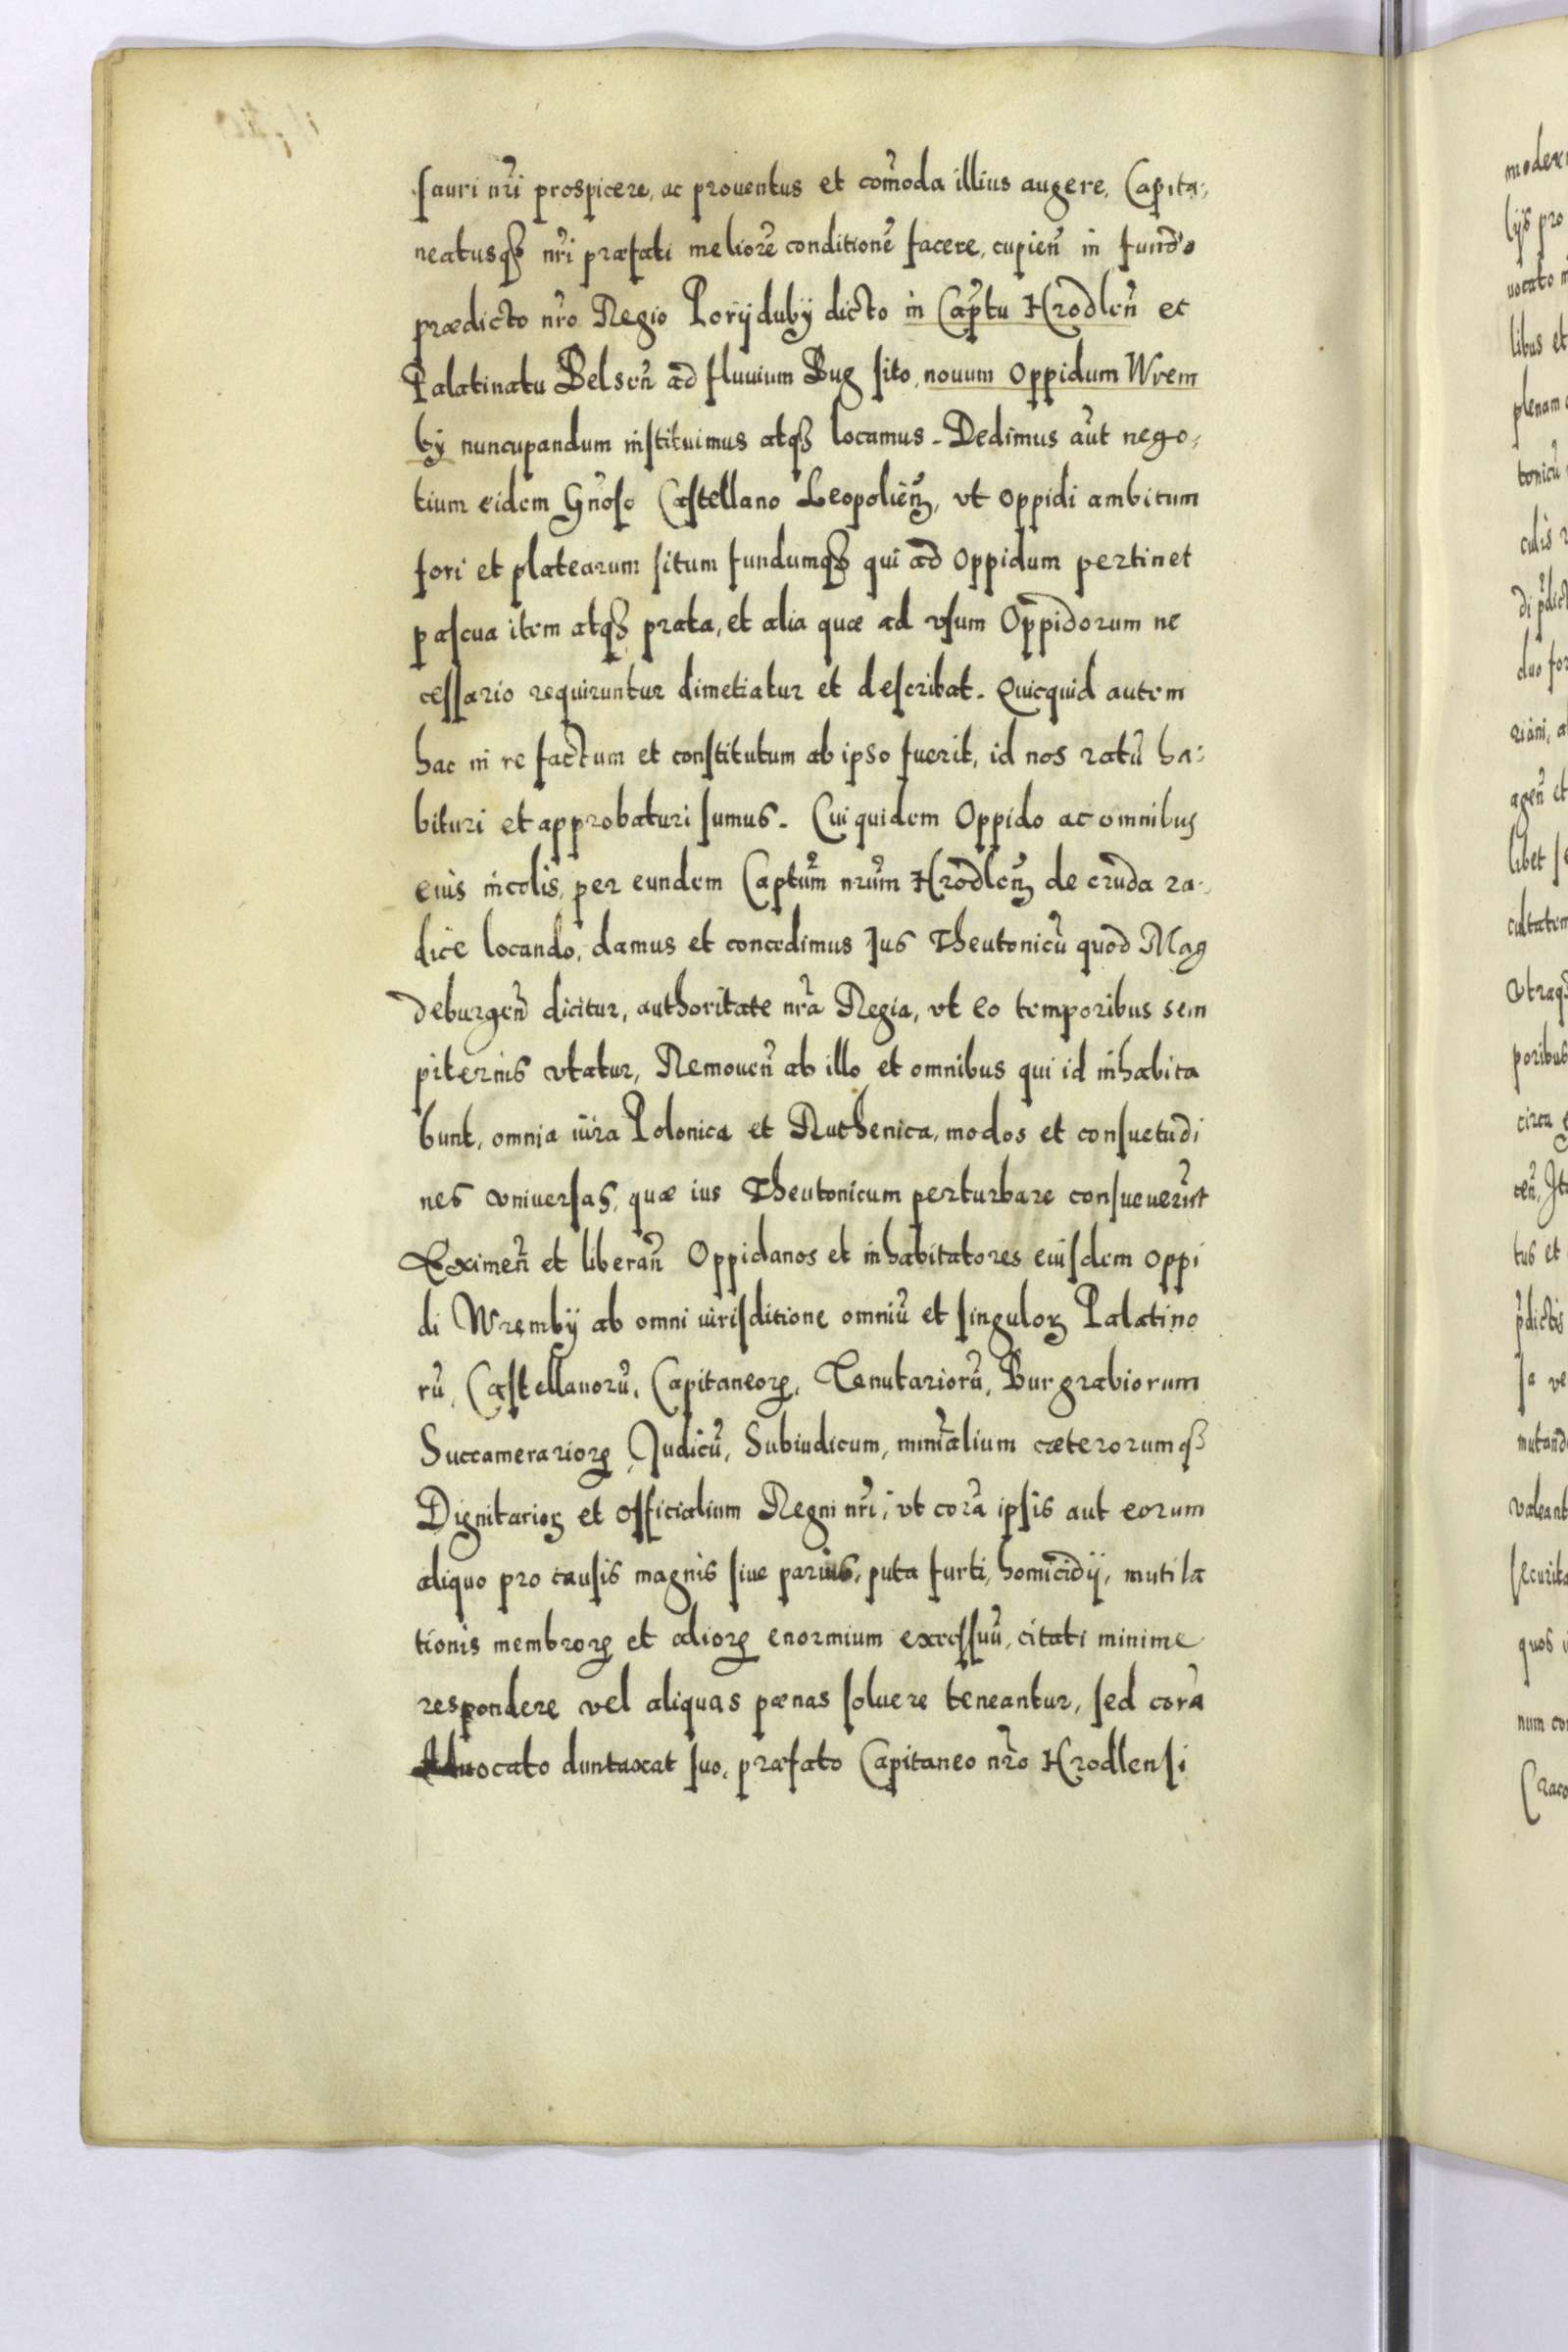 sauri nr̃i prospicere, ac prouentus et com̃oda illius augere, Capita-
neatusqȝ nr̃i præfati meliorẽ conditionẽ facere, cupieñ in fundo
prædicto nr̃o Regio Poryduby dicto in Capt̃u Hrodleñ et
Palatinatu Belseñ ad fluuium Bug sito, nouum oppidum Wrem
by nuncupandum instituimus atqȝ locamus. Dedimus aũt nego-
tium eidem Gñoso Castellano Leopolieñ, vt oppidi ambitum
fori et platearum situm fundumqȝ qui ad oppidum pertinet
pascua item atqȝ prata, et alia quæ ad vsum Oppidorum ne
cessario requiruntur dimetiatur et describat. Quicquid autem
hac in re factum et constitutum ab ipso fuerit, id nos ratũ ha-
bituri et approbaturi sumus. Cui quidem Oppido ac omnibus
eius incolis, per eundem Captũm nr̃um Hrodleñ de cruda ra-
dice locando, damus et concedimus Jus Theutonicũ quod Mag
deburgeñ dicitur, authoritate nr̃a Regia, vt eo temporibus sem
piternis vtatur, Remoueñ ab illo et omnibus qui id inhabita
bunt, omnia iura Polonica et Ruthenica, modos et consuetudi
nes vniuersas, quæ ius Theutonicum perturbare consueuerũt
Eximeñ et liberañ Oppidanos et inhabitatores eiusdem oppi
di Wremby ab omni iurisditione omniũ et singuloꝝ Palatino
rũ, Castellanorũ, Capitaneoꝝ, Tenutariorũ, Burgrabiorum
Succamerarioꝝ, Judicũ, Subiudicum, minr̃alium cæterorumqȝ
Dignitarioꝝ et officialium Regni nr̃i, vt corã ipsis aut eorum
aliquo pro causis magnis siue paruis, puta furti, homicidij, mutila
tionis membroꝝ et alioꝝ enormium excessuũ, citati minime
respondere vel aliquas pœnas soluere teneantur, sed corã
Aduocato duntaxat suo, præfato Capitaneo nr̃o Hrodlensi